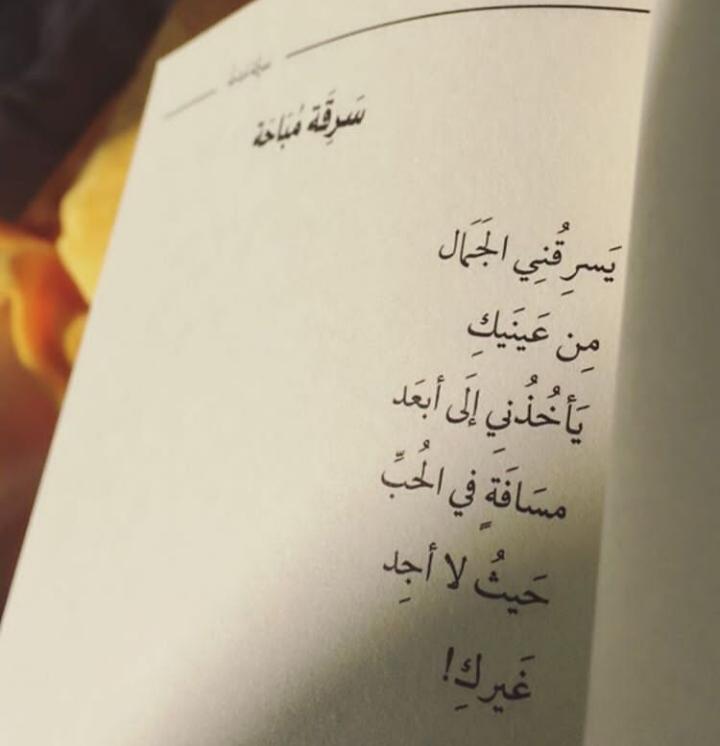 سَرِقَة مُبَاحَة
يَسرِقُنِي الجَمَال
مِن عَينَيكِ
يَأخُذُنِي إلَى أبعَد
مسَافَةٍ في الحُبِّ
حَيثُ لا أجِد
غَيركِ!